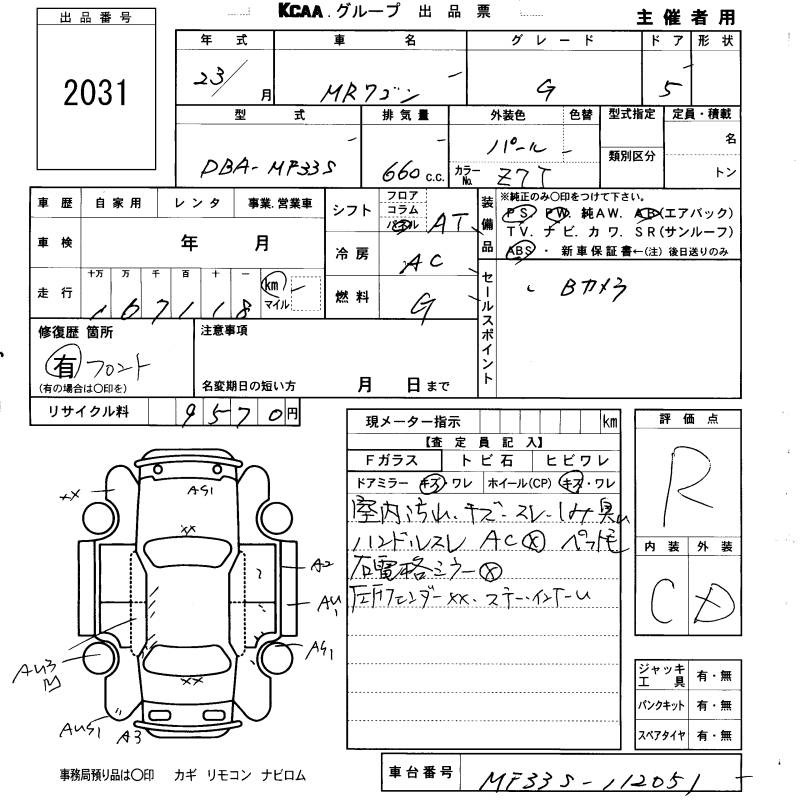 KCAA.グループ 出品票
主催者用
出品番号
2031
年式 車名 グレード ドア 形状
23/ 月 MRワゴン G 5
型式 排気量 外装色 色替 型式指定 定員・積載
DBA-MF33S 660 C.C. パール 類別区分 名
カラーNo. Z7T トン
車歴 自家用 レンタ 事業.営業車
車検 年 月
走行 十万 万 千 百 十 一 km マイル
167118
シフト フロア コラム パネル AT
冷房 AC
燃料 G
装備品 ※純正のみ〇印をつけて下さい。
PS. PW. 純AW. AB(エアバック)
TV. ナビ. カワ. SR(サンルーフ)
ABS ・ 新車保証書←(注)後日送りのみ
セールスポイント
Bカメラ
修復歴 箇所
有 フロント
(有の場合は〇印を)
注意事項
名変期日の短い方 月 日まで
リサイクル料 9570円
現メーター指示 km
【査定員記入】
Fガラス トビ石 ヒビワレ
ドアミラー キズ・ワレ ホイール(CP) キズ・ワレ
室内汚れ・キズ・スレ・しみ臭い
ハンドルスレ AC ペット毛
右電格ミラー
左右Fフェンダーxx.ステー.インナーU
評価点
R
内装 外装
C D
ジャッキ工具 有・無
パンクキット 有・無
スペアタイヤ 有・無
xx
AS1
xx
A2
AU1
AS1
AU3
xx
AUS1
A3
事務局預り品は〇印 カギ リモコン ナビロム
車台番号 MF33S-112051